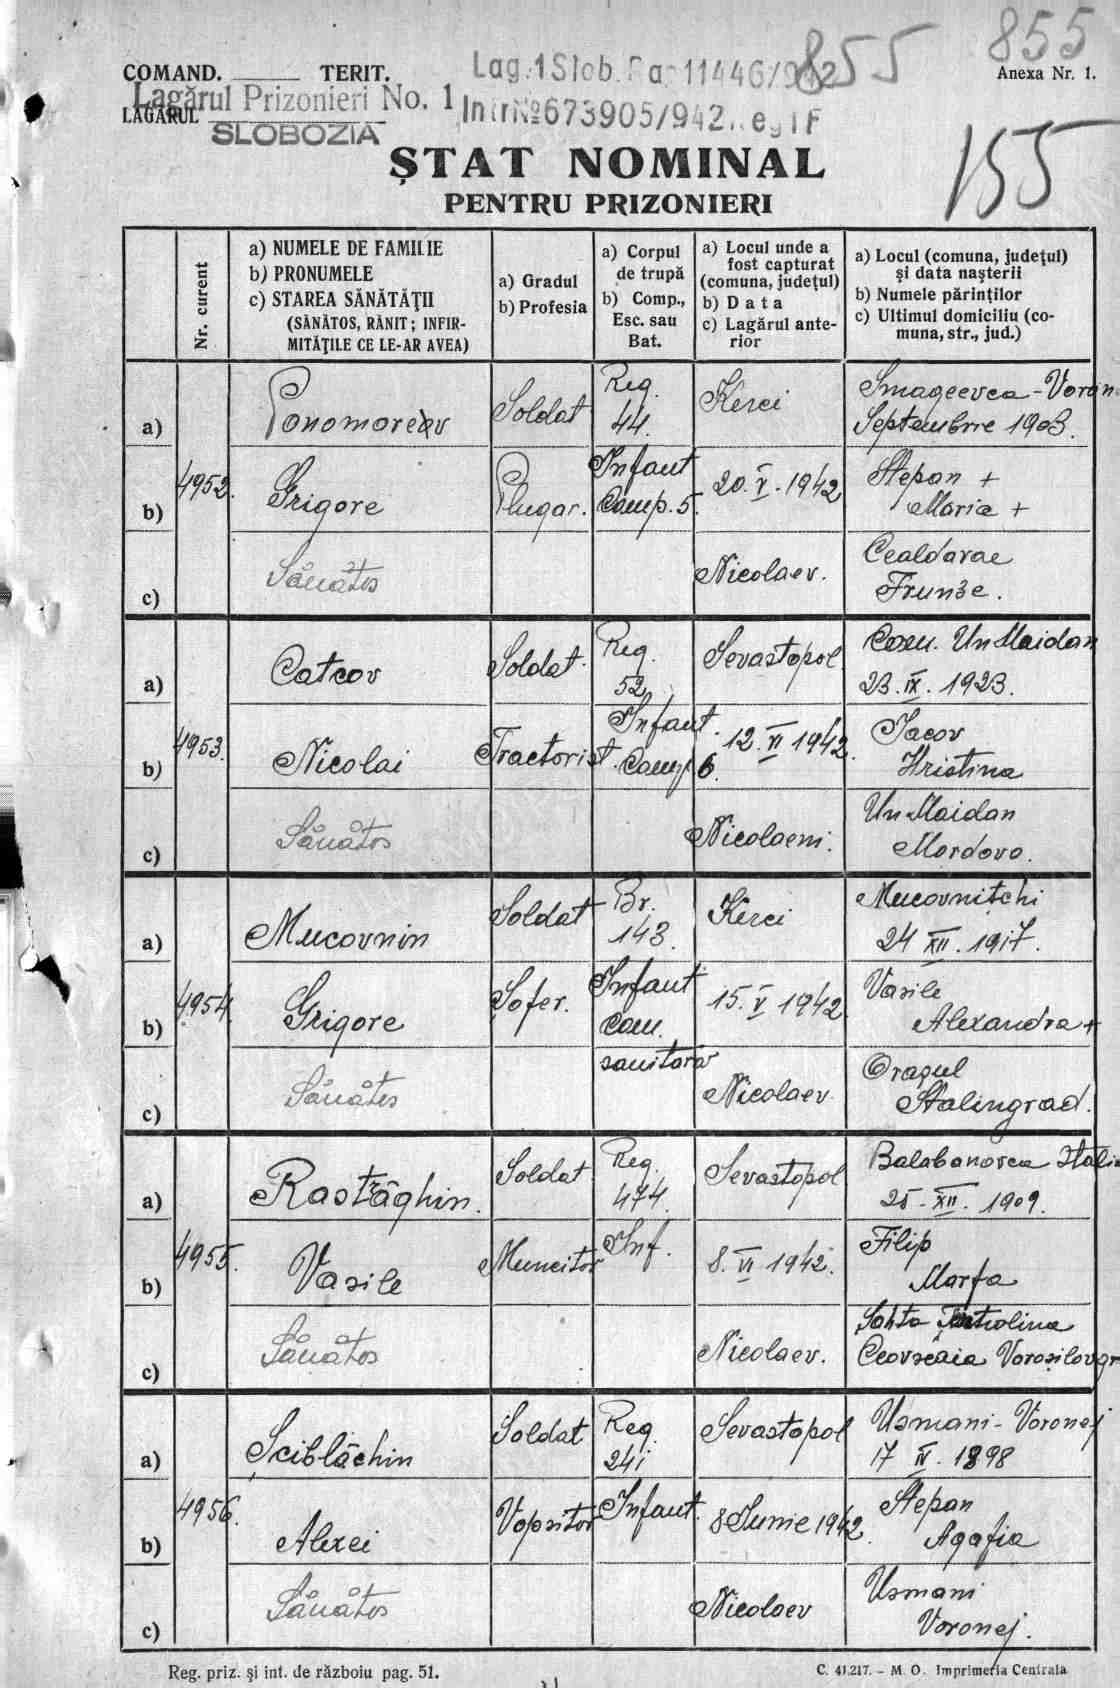 855
855
COMAND. TERIT.
Lag. 1 Slob.
Anexa Nr. 1.
LAGĂRUL
Lagărul Prizonieri No. 1
SLOBOZIA
Intr № 673905/942
155
ŞTAT NOMINAL
PENTRU PRIZONIERI
Nr. curent
a) NUMELE DE FAMILIE
b) PRONUMELE
c) STAREA SĂNĂTĂŢII
(SĂNĂTOS, RĂNIT; INFIR-
MITĂŢILE CE LE-AR AVEA)
a) Gradul
b) Profesia
a) Corpul
de trupă
b) Comp.,
Esc. sau
Bat.
a) Locul unde a
fost capturat
(comuna, judeţul)
b) Data
c) Lagărul ante-
rior
a) Locul (comuna, judeţul)
şi data naşterii
b) Numele părinţilor
c) Ultimul domiciliu (co-
muna, str., jud.)
4952.
a) Ponomoreav
Soldat
Reg.
44.
Kerci
Smageevca - Voron
Septembrie 1903.
b) Grigore
Plugar.
Infant
Comp. 5.
20. V. 1942
Stepan +
Maria +
c) Sănătos
Nicolaev.
Cealdavae
Frunze.
4953.
a) Catcov
Soldat
Reg.
52
Sevastopol
Com. Un Maidan
23. IX. 1923.
b) Nicolai
Tractorist.
Infant.
Comp 6.
12. VI 1942.
Iacov
Hristina
c) Sănătos
Nicolaem.
Un Maidan
Mordovo.
4954.
a) Mucovnin
Soldat
Br.
143.
Kerci
Mucovniţchi
24 XII. 1917.
b) Grigore
Şofer.
Infant
Com.
sanitara
15. V 1942.
Vasile
Alexandra +
c) Sănătos
Nicolaev
Oraşul
Stalingrad.
4955.
a) Rastrăghin.
Soldat
Reg.
474.
Sevastopol
Balabanovca Stali
25. XII. 1909.
b) Vasile
Muncitor
Inf.
8. VI 1942.
Filip
Marfa
c) Sănătos
Nicolaev.
Şahta
Ceovscaia Voroşilovgr
4956.
a) Şciblăchin
Soldat
Reg.
241
Sevastopol
Usmani - Voronej
17 IV. 1898
b) Alexei
Vopsitor
Infant.
8 Iunie 1942.
Stepan
Agafia
c) Sănătos
Nicolaev
Usmani
Voronej.
Reg. priz. şi int. de războiu pag. 51.
C. 41.217. – M. O. Imprimeria Centrala